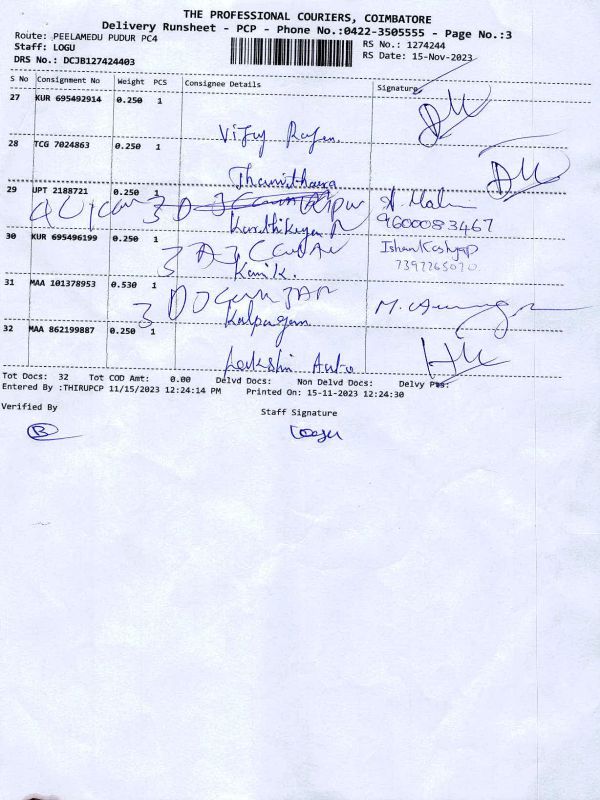 THE PROFESSIONAL COURIERS, COIMBATORE
Delivery Runsheet - PCP - Phone No.:0422-3505555 - Page No.:3
Route: PEELAMEDU PUDUR PC4
RS No.: 1274244
Staff: LOGU
RS Date: 15-Nov-2023
DRS No.: DCJB127424403
S No Consignment No Weight PCS Consignee Details Signature
27 KUR 695492914 0.250 1
Vijay Rajan.
28 TCG 7024863 0.250 1
29 UPT 2188721 0.250 1
9600083467
Karthikeyan
30 KUR 695496199 0.250 1
Ishan Kashyap
Kanik.
31 MAA 101378953 0.530 1
Kalpagam
32 MAA 862199887 0.250 1
Lakshmi Auto
Tot Docs: 32 Tot COD Amt: 0.00 Delvd Docs: Non Delvd Docs: Delvy Pts:
Entered By :THIRUPCP 11/15/2023 12:24:14 PM Printed On: 15-11-2023 12:24:30
Verified By
Staff Signature
B